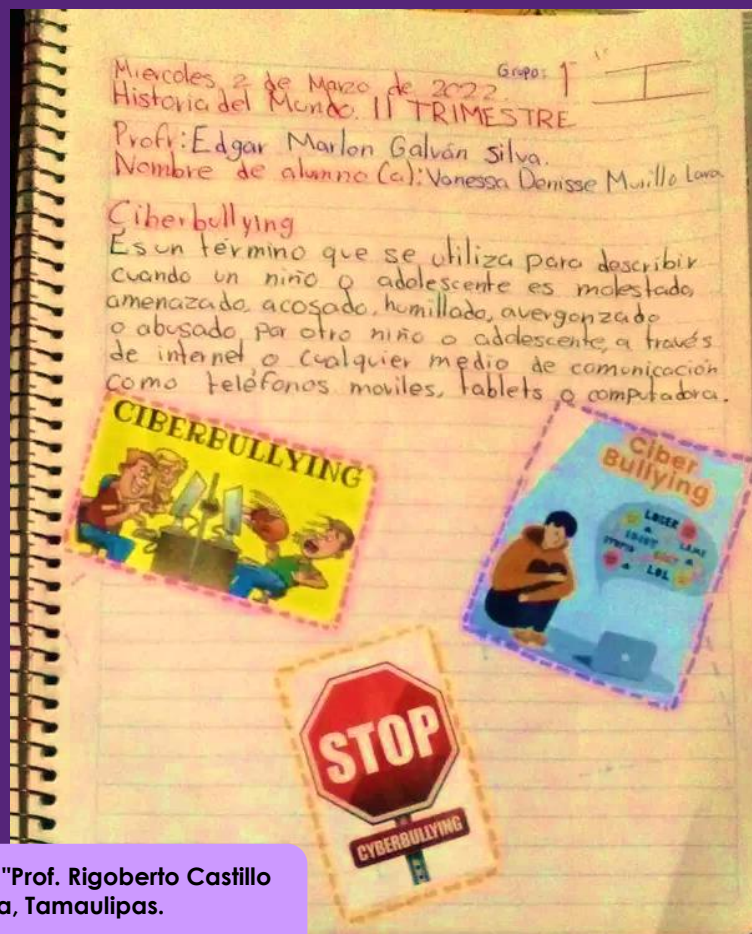 Miercoles 2 de Marzo de 2022. Grupo: 1 " I "
Historia del Mundo. II TRIMESTRE
Profr: Edgar Marlon Galván Silva.
Nombre de alumno (a): Vanessa Denisse Murillo Lara
Ciberbullying
Es un término que se utiliza para describir
cuando un niño o adolescente es molestado,
amenazado, acosado, humillado, avergonzado
o abusado, por otro niño o adolescente, a través
de internet o cualquier medio de comunicación
como teléfonos moviles, tablets o computadora.
CIBERBULLYING
Ciber
Bullying
LOSER
IDIOT
LAME
STUPID
LOL
STOP
CYBERBULLYING
"Prof. Rigoberto Castillo
a, Tamaulipas.